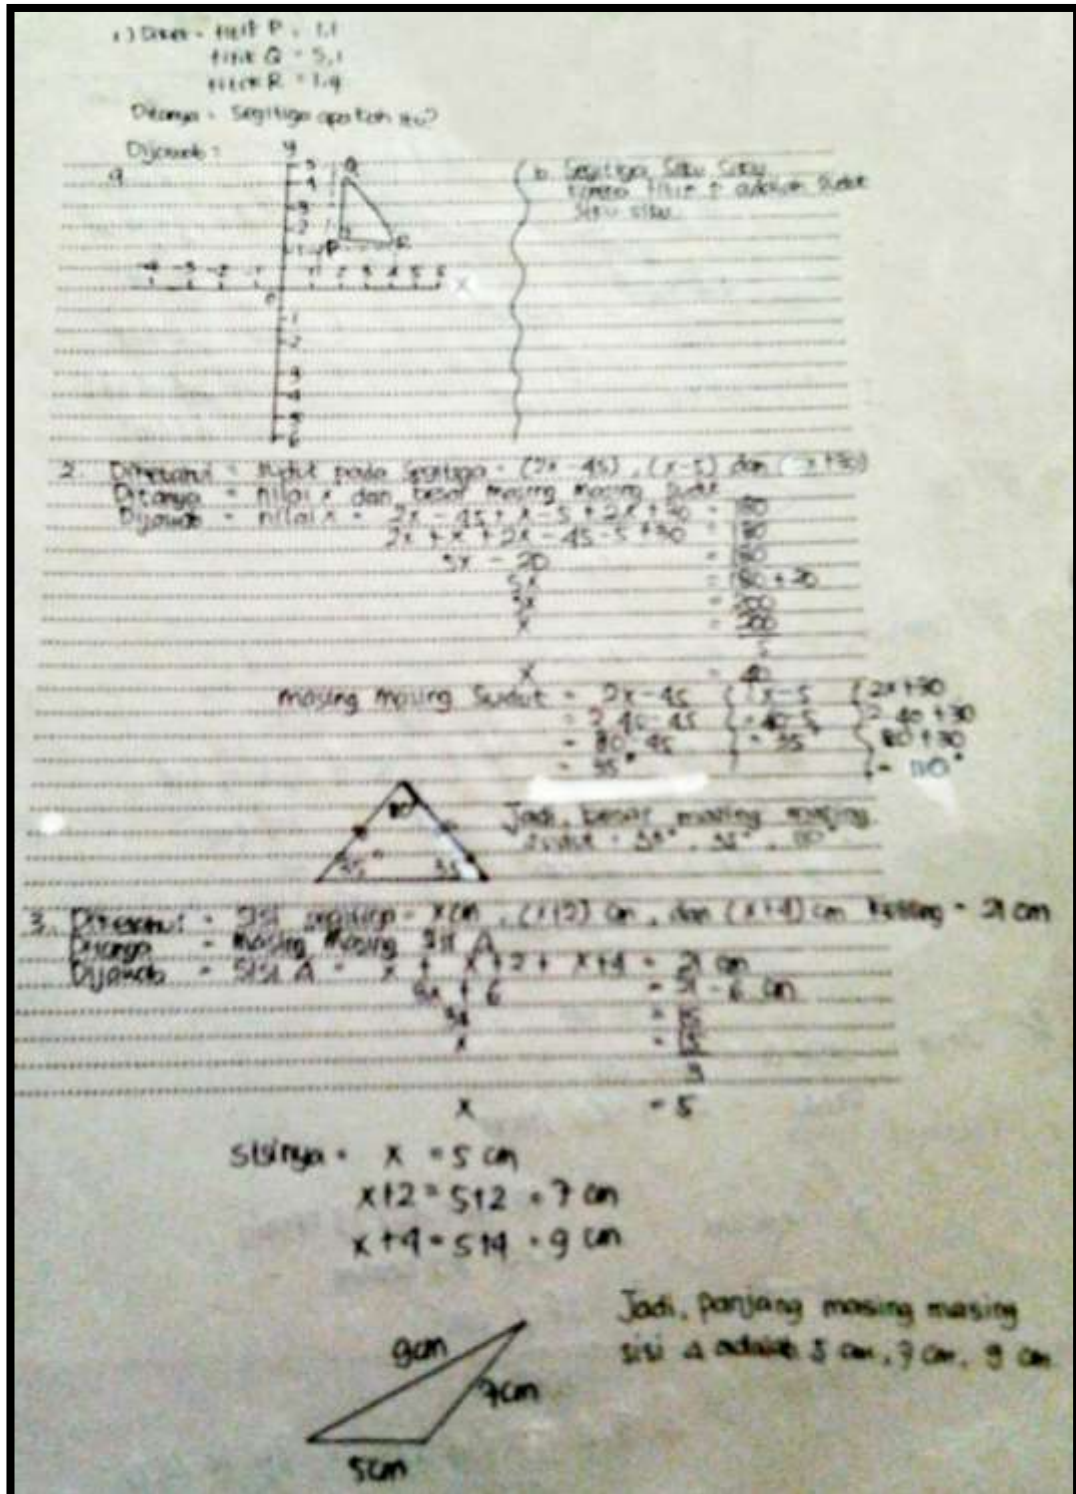 1.) Diket = titik P = 1,1
titik Q = 5,1
titik R = 1,4
Ditanya = Segitiga apakah itu?
Dijawab =
a
y
5
4
3
2
1
Q
P
R
-4 -3 -2 -1 1 2 3 4 5 6 X
0
-1
-2
3
4
5
6
b. Segitiga Siku Siku
karena titik P adalah Sudut
Siku siku
2. Diketahui = Sudut pada segitiga = (2x - 45), (x-5) dan ( x+30)
Ditanya = nilai x dan besar masing masing Sudut
Dijawab = nilai x = 2x - 45 + x - 5 + 2x + 30 = 180
2x + x + 2x - 45 - 5 + 30 = 180
5x - 20 = 180
5x = 180 + 20
5x = 200
x = 200
5
x = 40
masing masing Sudut = 2x-45 { x-5 { 2x+30
= 2.40-45 { = 40-5 { 2.40+30
= 80-45 { = 35 { 80+30
= 35° = 110°
110
35° 35
Jadi, besar masing masing
sudut = 35°, 35°, 110°
3. Diketahui = Sisi segitiga = x cm, (x+2) cm, dan (x+4) cm Keliling = 21 cm
Ditanya = masing masing Sisi Δ
Dijawab = Sisi Δ = x + x+2 + x+4 = 21 cm
3x + 6 = 21 - 6 cm
3x = 15
x = 15
3
x = 5
sisinya = x = 5 cm
x+2 = 5+2 = 7 cm
x+4 = 5+4 = 9 cm
Jadi, panjang masing masing
sisi Δ adalah 5 cm, 7 cm, 9 cm
9cm
7cm
5cm